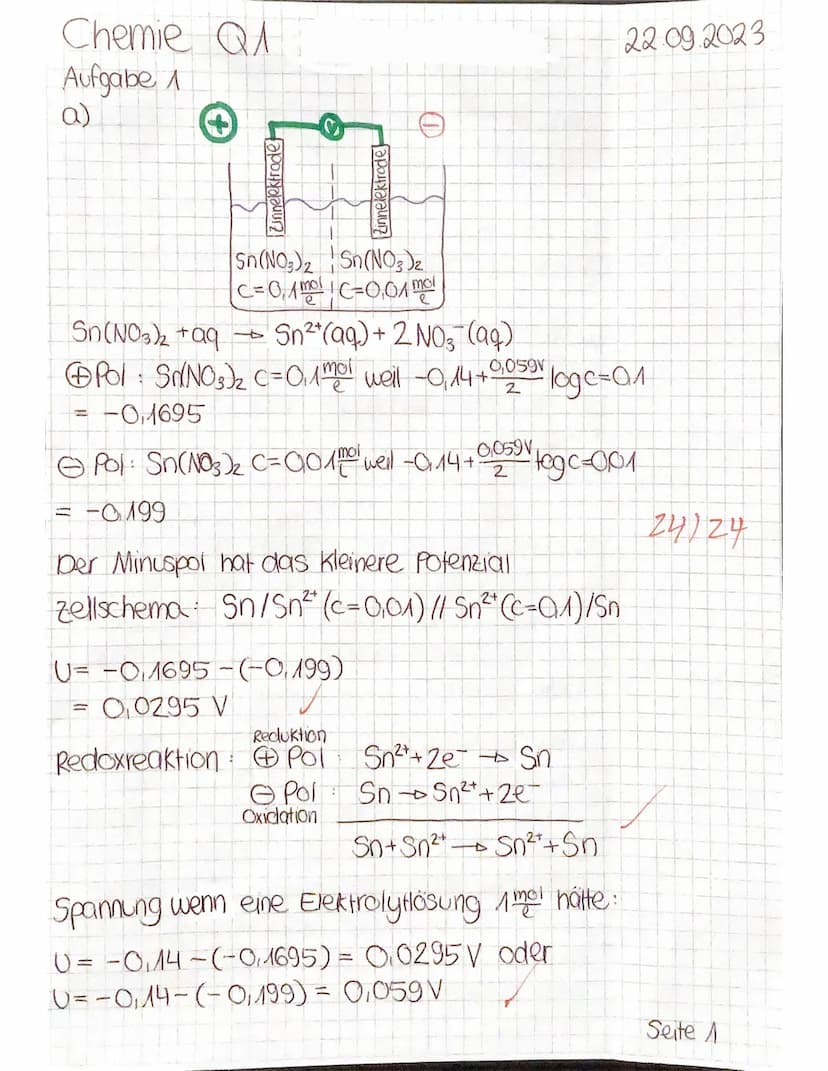 Chemie Q1
22.09.2023
Aufgabe 1
a)
+ V −
Zinnelektrode Zinnelektrode
Sn(NO₃)₂ Sn(NO₃)₂
C=0,1 mol/l C=0,01 mol/l
Sn(NO₃)₂ + aq → Sn²⁺(aq) + 2 NO₃⁻(aq)
⊕ Pol : Sn(NO₃)₂ C=0,1 mol/l weil -0,14 + 0,059V/2 log c=0,1
= -0,1695
⊖ Pol : Sn(NO₃)₂ C=0,01 mol/l weil -0,14 + 0,059V/2 log c=0,01
= -0,199
24/24
Der Minuspol hat das kleinere Potenzial
Zellschema: Sn/Sn²⁺ (c=0,01) // Sn²⁺ (c=0,1)/Sn
U= -0,1695 -(-0,199)
= 0,0295 V
Redoxreaktion : Reduktion ⊕ Pol : Sn²⁺ + 2e⁻ → Sn
⊖ Pol : Sn → Sn²⁺ + 2e⁻
Oxidation
Sn + Sn²⁺ → Sn²⁺ + Sn
Spannung wenn eine Elektrolytlösung 1 mol/l hätte:
U= -0,14 -(-0,1695) = 0,0295 V oder
U= -0,14 -(-0,199) = 0,059 V
Seite 1